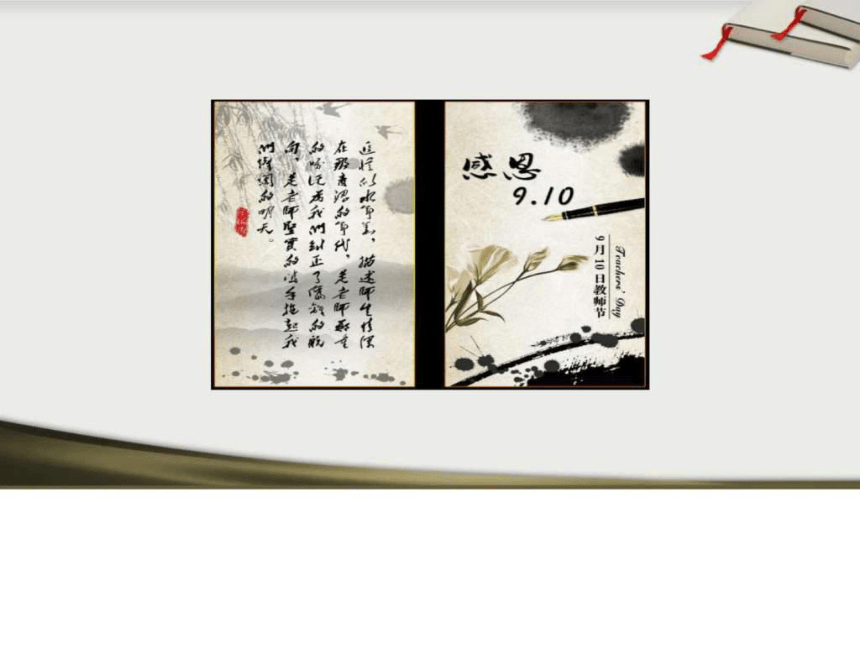 追忆似水年华，描述师生情深
在那青涩的年代，是老师郑重
的为我们纠正了的航
向，是老师坚实的手托起我
们的明天。
感恩
9.10
Teachers' Day
9月10日教师节